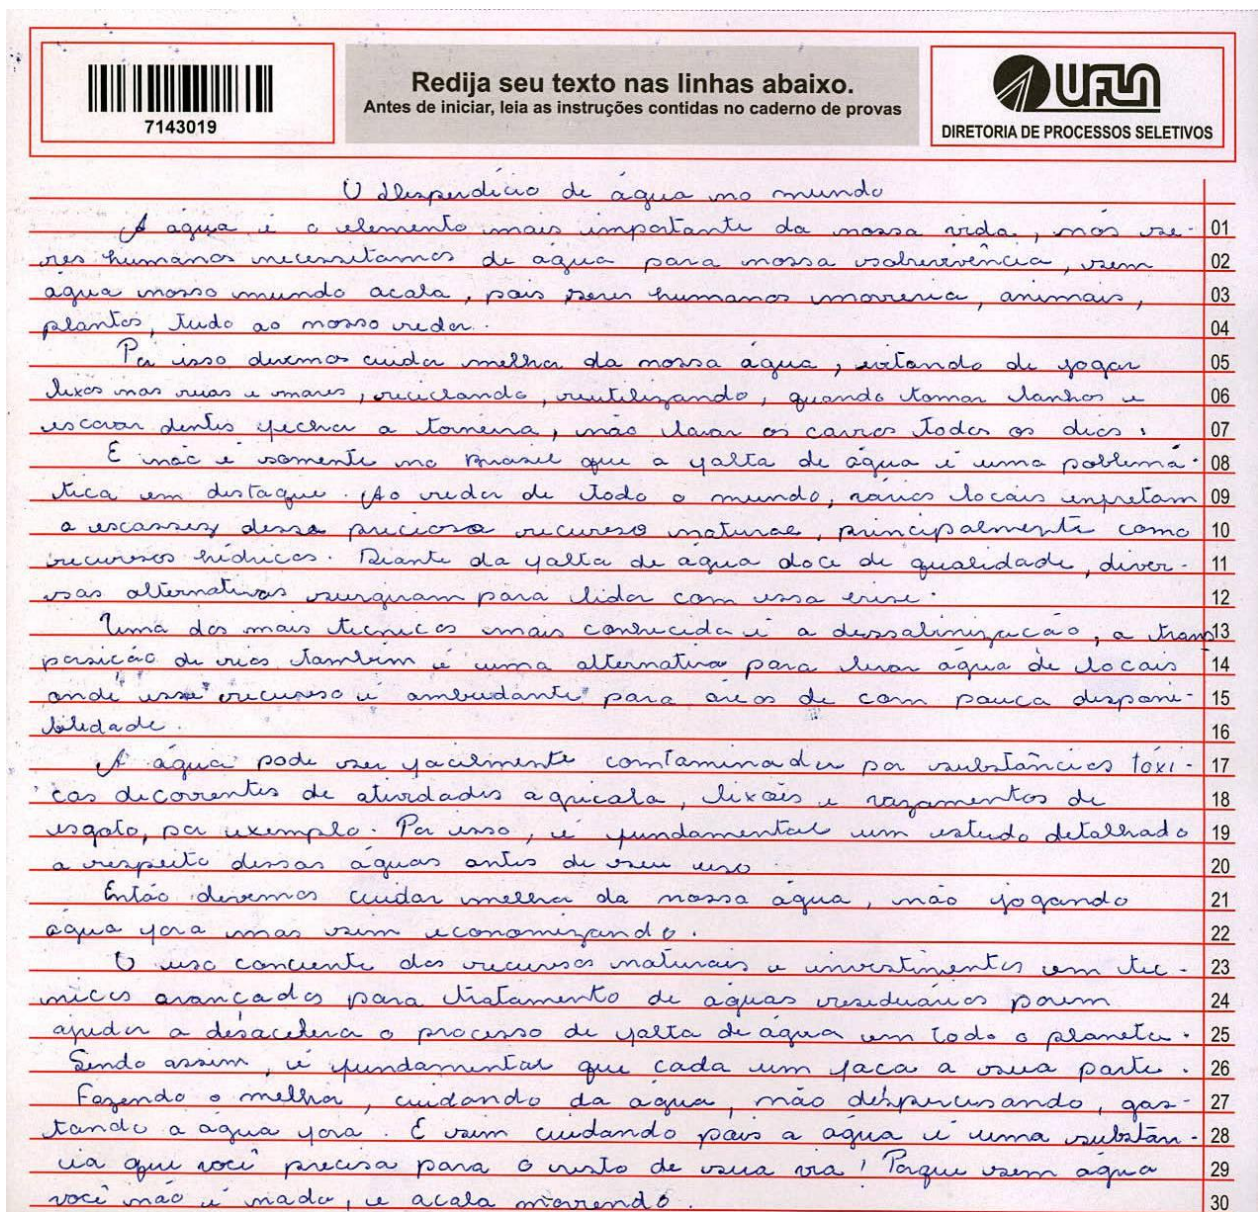 7143019
Redija seu texto nas linhas abaixo.
Antes de iniciar, leia as instruções contidas no caderno de provas
UFLA
DIRETORIA DE PROCESSOS SELETIVOS
O desperdício de água no mundo
A água é o elemento mais importante da nossa vida, nós se- 01
res humanos necessitamos de água para nossa sobrevivência, sem 02
água nosso mundo acaba, pois seres humanos morreria, animais, 03
plantas, tudo ao nosso redor. 04
Por isso devemos cuidar melhor da nossa água, evitando de jogar 05
lixos nas ruas e mares, reciclando, reutilizando, quando tomar banhos e 06
escovar dentes fechar a torneira, não lavar os carros todos os dias. 07
E não é somente no Brasil que a falta de água é uma poblemá- 08
tica em destaque. Ao redor de todo o mundo, vários locais enfretam 09
a escassez desse precioso recurso natural, principalmente como 10
recursos hídricos. Diante da falta de água doce de qualidade, diver- 11
sas alternativas surguram para lidar com essa crise. 12
Uma das mais tecnicas mais conhecida é a dessalinização, a trans 13
posição de rios também é uma alternativa para levar água de locais 14
onde esse recurso é ambudante para áreas de com pouca disponi- 15
bilidade. 16
A água pode ser facilmente comtaminada por substâncias tóxi- 17
cas decorrentes de atividades agricola, lixões e vazamentos de 18
esgoto, por exemplo. Por isso, é fundamental um estudo detalhado 19
a respeito dessas águas antes de seu uso 20
Então devemos cuidar melhor da nossa água, não jogando 21
água fora mas sim economizando. 22
O uso conciente dos recursos naturais e investimentos em téc- 23
nicas avançadas para tratamento de águas residuárias poem 24
ajudar a desacelera o processo de falta de água em todo o planeta. 25
Sendo assim, é fundamental que cada um faca a sua parte. 26
Fazendo o melhor, cuidando da água, não déspercisando, gas- 27
tando a água fora. E sim cuidando pois a água é uma substân- 28
cia que você precisa para o resto de sua via! Porque sem água 29
você não é nada, e acaba morrendo. 30